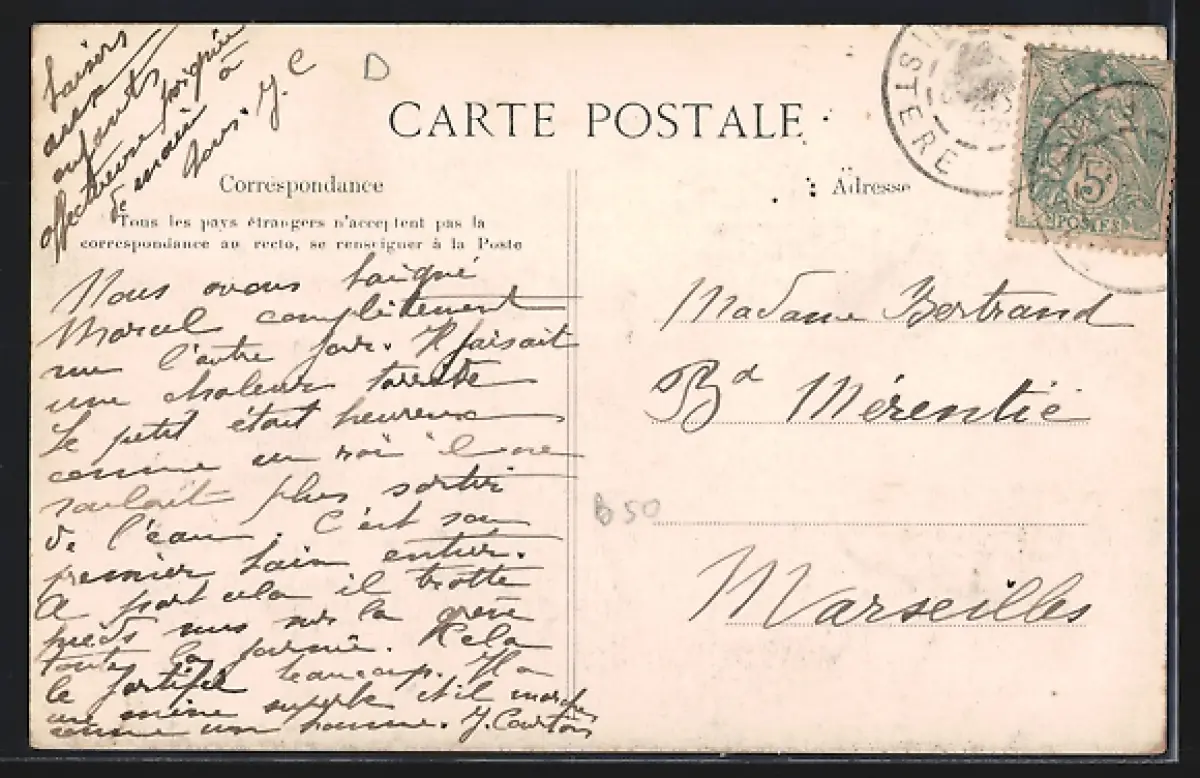 baisers
aux
enfants
affectueuse poignée
de main à
tous. J. C
D
CARTE POSTALE
Correspondance
Tous les pays étrangers n'acceptent pas la
correspondance au recto, se renseigner à la Poste
Nous avons baigné
Marcel complètement
nu l'autre jour. Il faisait
une chaleur torride
Le petit était heureux
comme un roi il ne
voulait plus sortir
de l'eau. C'est son
premier bain entier.
A part cela il trotte
pieds nus sur la grève
toute la journée. Cela
le fortifie beaucoup. Il a
une mine superbe et il marche
comme un homme. J.
Adresse
Madame Bertrand
Bd Mérentié
B50
Marseilles
ISTERE
5
POSTES